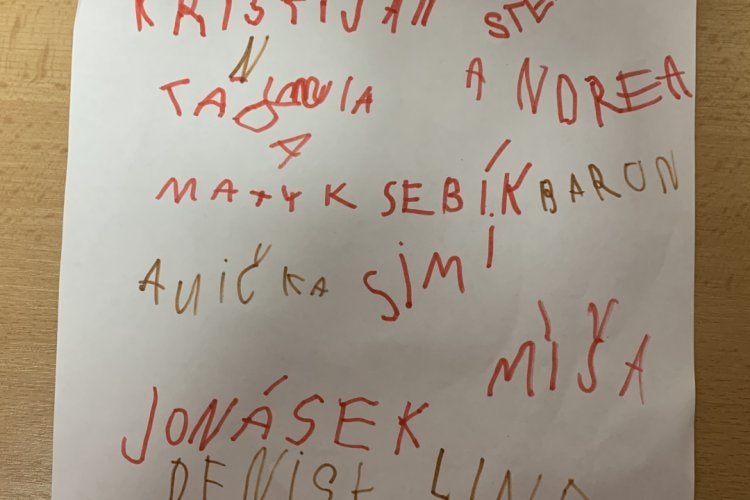 KRISTIJAN STE
ANDREA
MATYK SEBÍK BARON
ANIČKA SIMI
MÍŠA
JONÁSEK
DENISE LINA